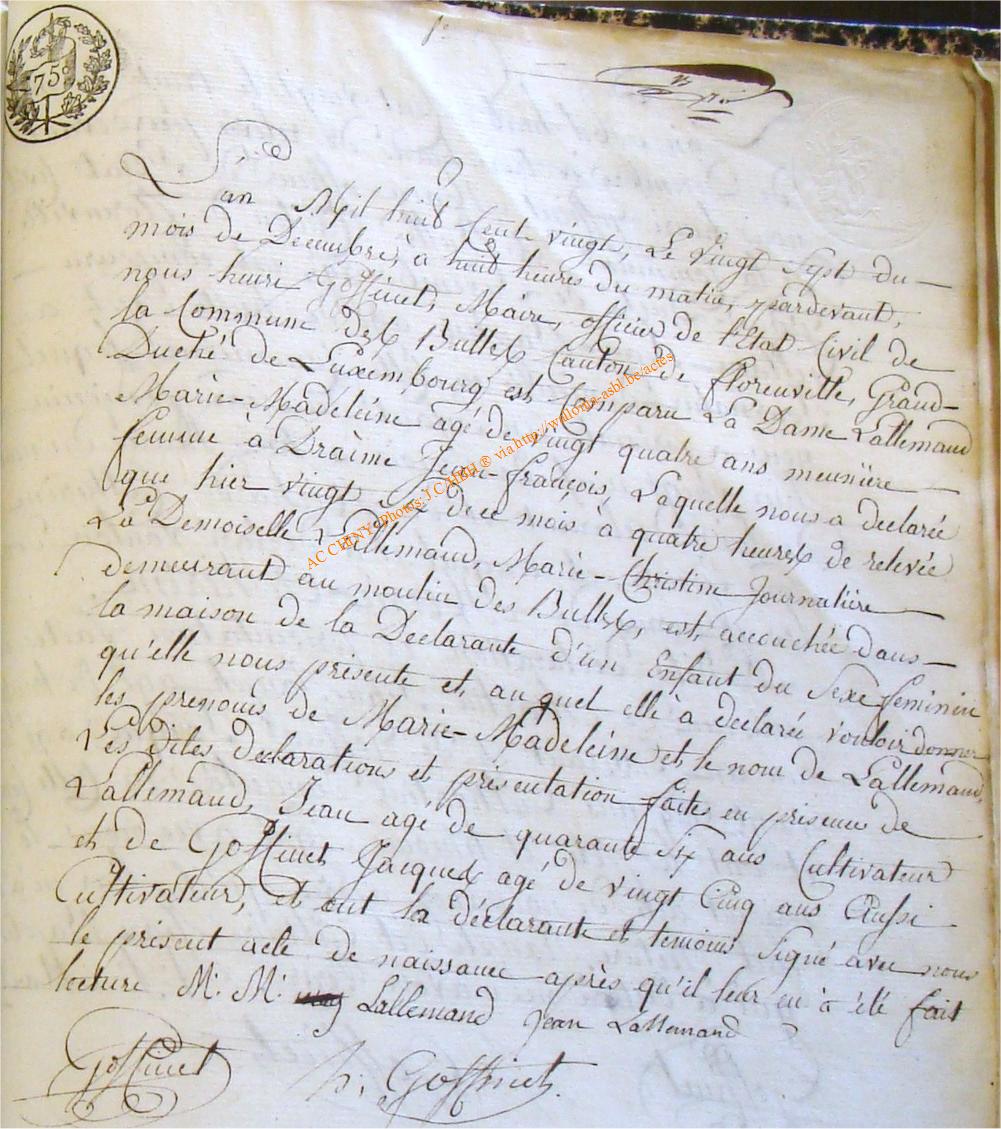 75
L'an Mil huit Cent vingt, Le vingt Sept du
mois de Decembre, à huit heures du matin, pardevant,
nous henri Goffinet, Maire, officier de l'Etat Civil de
la Commune des Bulles Canton de florenville, Grand-
Duché de Luxembourg est Comparu La Dame Lallemand
Marie-Madeleine agé de vingt quatre ans meunière
femme à Draime Jean-françois, Laquelle nous a declarée
que hier vingt de ce mois à quatre heures de relevée
La Demoiselle Lallemand, Marie-Christine Journalière
demeurant au moulin des Bulles, est accouchée dans
la maison de la Declarante d'un Enfant du Sexe feminin
qu'elle nous présente et auquel elle à declarée vouloir donner
les prenoms de Marie-Madeleine et le nom de Lallemand,
Les dites declarations et présentation faites en presence de
Lallemand, Jean agé de quarante Six ans Cultivateur
et de Goffinet Jacques agé de vingt Cinq ans Aussi
Cultivateur, et ont la déclarante et temoins Signé avec nous
le présent acte de naissance après qu'il leur en à été fait
lecture M: M: Lallemand Jean Lallemand
Goffinet h: Goffinet
AC CHINY Photos: J.C.HBH ® via http://wallonia-asbl.be/actes